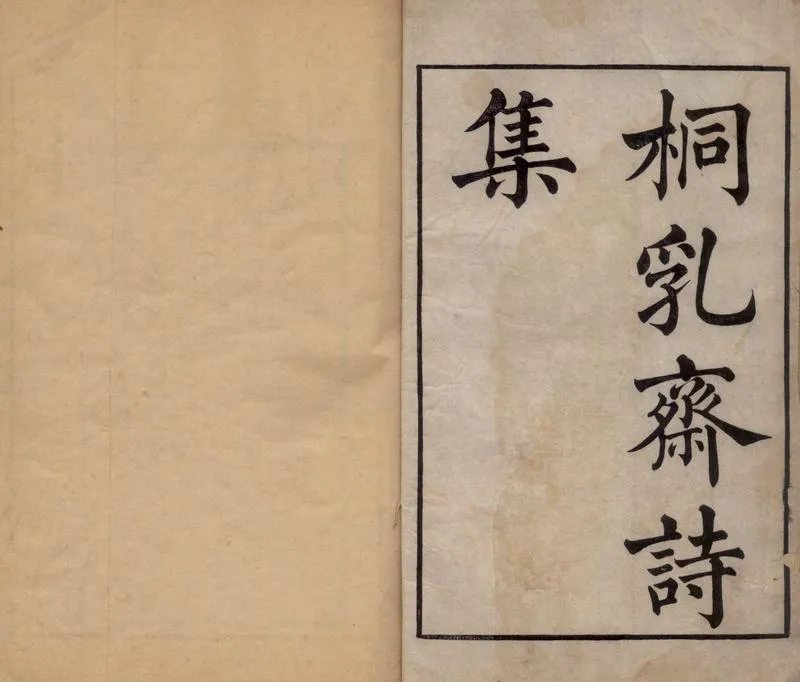 桐乳齋詩
集